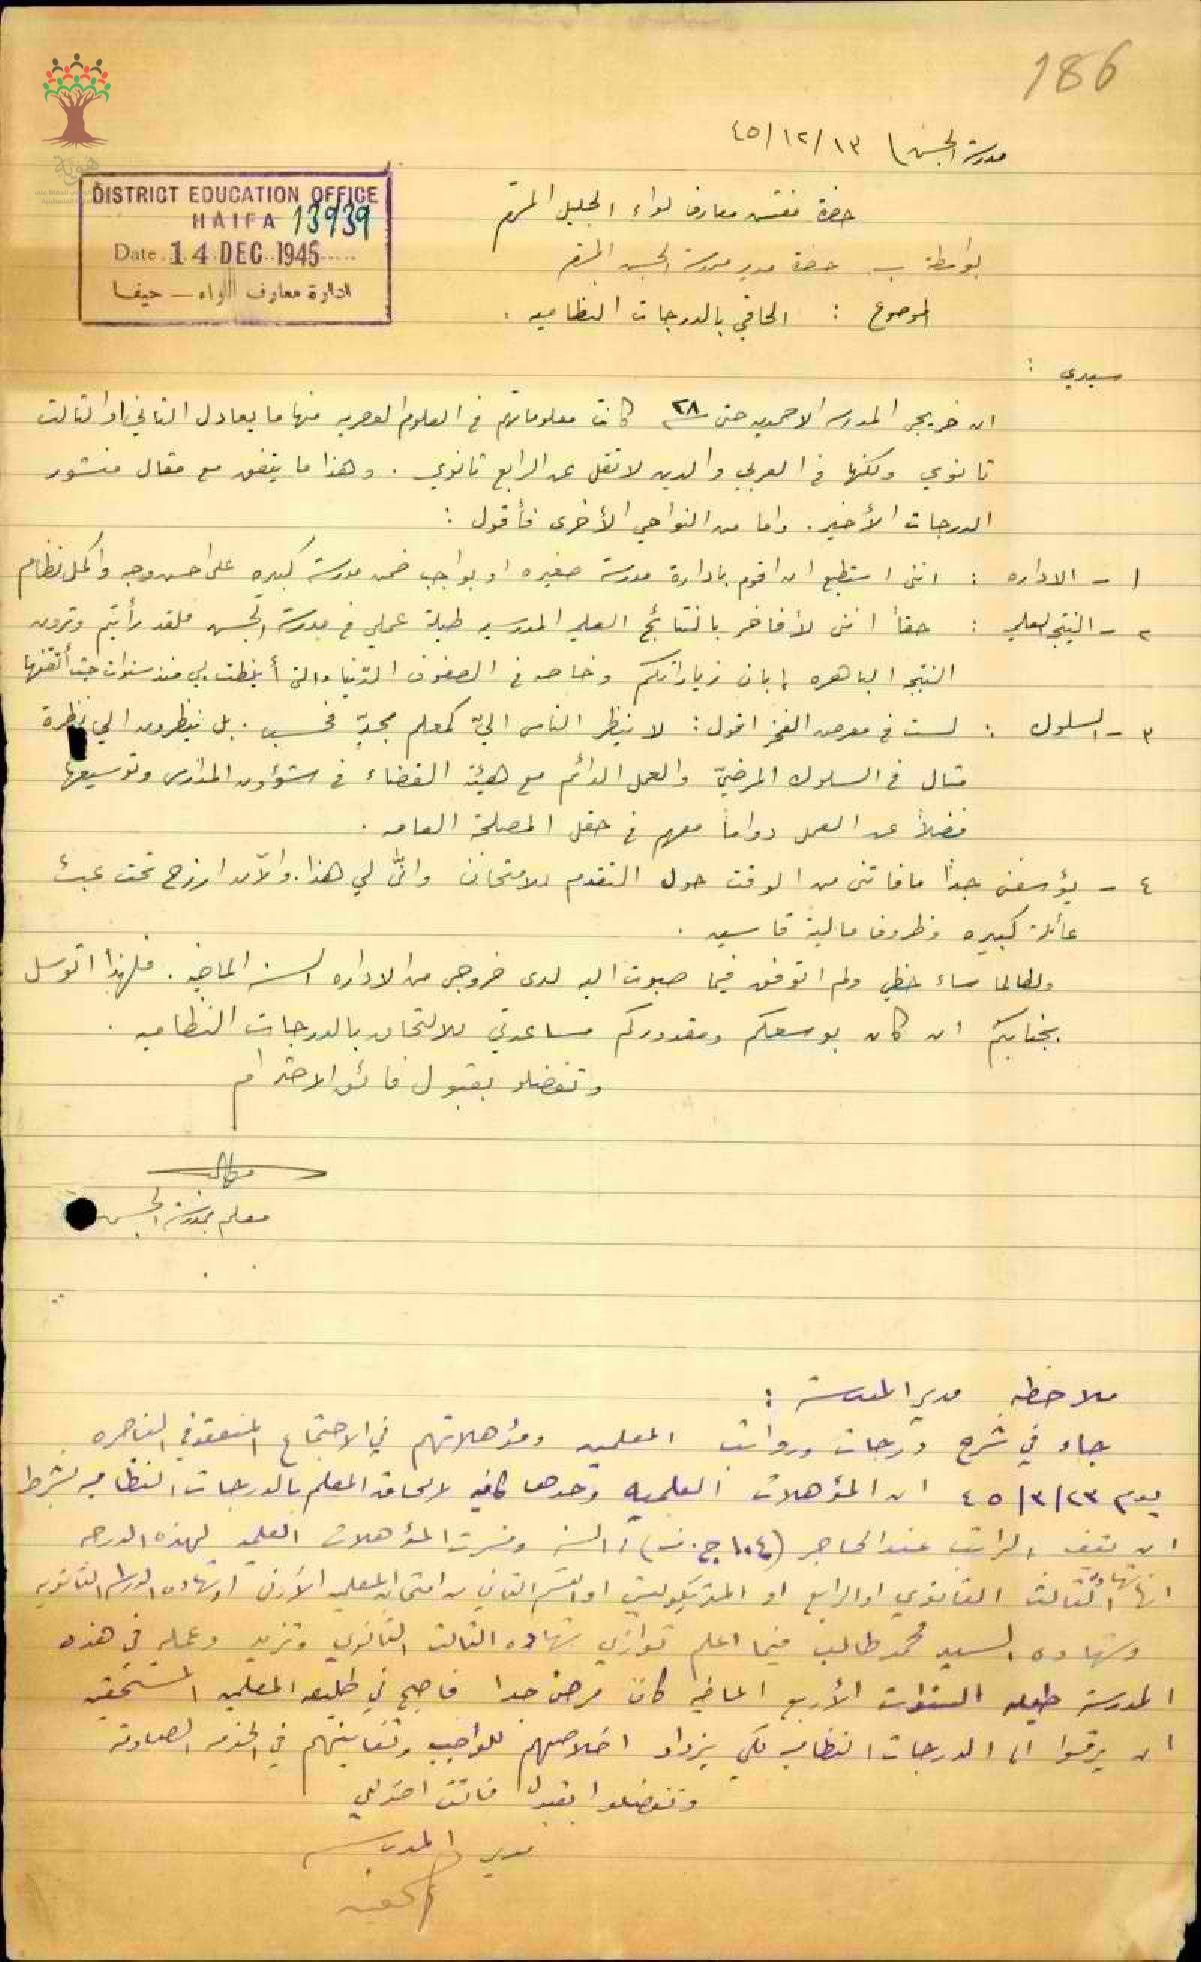 186
مدرسة الجش ١٣/١٢/٤٥
DISTRICT EDUCATION OFFICE
HAIFA 13939
Date 14 DEC 1945
ادارة معارف اللواء — حيفا
حضرة مفتش معارف لواء الجليل المحترم
بواسطة حضرة مدير مدرسة الجش المحترم
الموضوع : الحاقي بالدرجات النظاميه .
سيدي :
ان خريجي المدرسه الاحمديه حتى ٢٨ كانت معلوماتهم في العلوم العصريه منها ما يعادل الثاني او الثالث
ثانوي ولكنها في العربي والدين لا تقل عن الرابع ثانوي . وهذا ما يتفق مع مقال منشور
الدرجات الأخير . واما من النواحي الأخرى فأقول :
١ – الاداره : انني استطيع ان اقوم بادارة مدرسة صغيره او بواجب ضمن مدرسة كبيره على احسن وجه واكمل نظام
٢ – النتيجه لعملي : حقاً انني لأفاخر بالنتائج العلميه المدرسيه طيلة عملي في مدرسة الجش فلقد رأيتم وترون
النتيجه الباهره إبان زياراتكم وخاصه في الصفوف الدنيا والتي أنيطت بي منذ سنوات حتى أتقنتها
٣ – السلوك : لست في معرض الفخر اقول : لا ينظر الناس اليّ كمعلم مجدٍ فحسب . بل ينظرون الي نظرة
مثال في السلوك المرضيّ والعمل الدائم مع هيئة القضاء في شؤون المدارس وتوسيعها
فضلاً عن العمل دواماً معهم في حقل المصلحة العامه .
٤ – يؤسفني جداً ما فاتني من الوقت حول التقدم للامتحان وانّى لي هذا . والآن ارزح تحت عبئ
عائلة كبيره وظروف مالية قاسيه .
ولطالما ساء حظي ولم اتوفق فيما صبوت اليه لدى خروجي من الاداره السنه الماضيه . فلهذا اتوسل
بجنابكم ان كان بوسعكم ومقدوركم مساعدتي للالتحاق بالدرجات النظاميه .
وتفضلوا بقبول فائق الاحترام
معلم بمدرسة الجش
ملاحظه مدير المدرسة :
جاء في شرح درجات ورواتب المعلمين ومؤهلاتهم في الاجتماع المنعقد في الناصره
يوم ٢٣/٣/٤٥ ان المؤهلات العلميه وحدها كافيه لالحاق المعلم بالدرجات النظاميه بشرط
ان يقف الراتب عند الحاجز (١٠٤ ج.ف) السنه وفسرت المؤهلات العلميه لهذه الدرجه
انها شهادة الثالث الثانوي او الرابع او المتريكوليشن او القسم الثاني من امتحان المعلمين الأدنى او شهادة الدراسه الثانويه
وشهادة السيد محمد طالب فيما اعلم توازي شهاده الثالث الثانوي وتزيد وعمله في هذه
المدرسة طيله السنوات الأربع الماضيه كان مرضٍ جدا فاصبح في طليعه المعلمين المستحقين
ان يرقوا الى الدرجات النظاميه لكي يزداد اخلاصهم للواجب وتفانيهم في الخدمه الصادقه
وتفضلوا بقبول فائق احترامي
مدير المدرسه